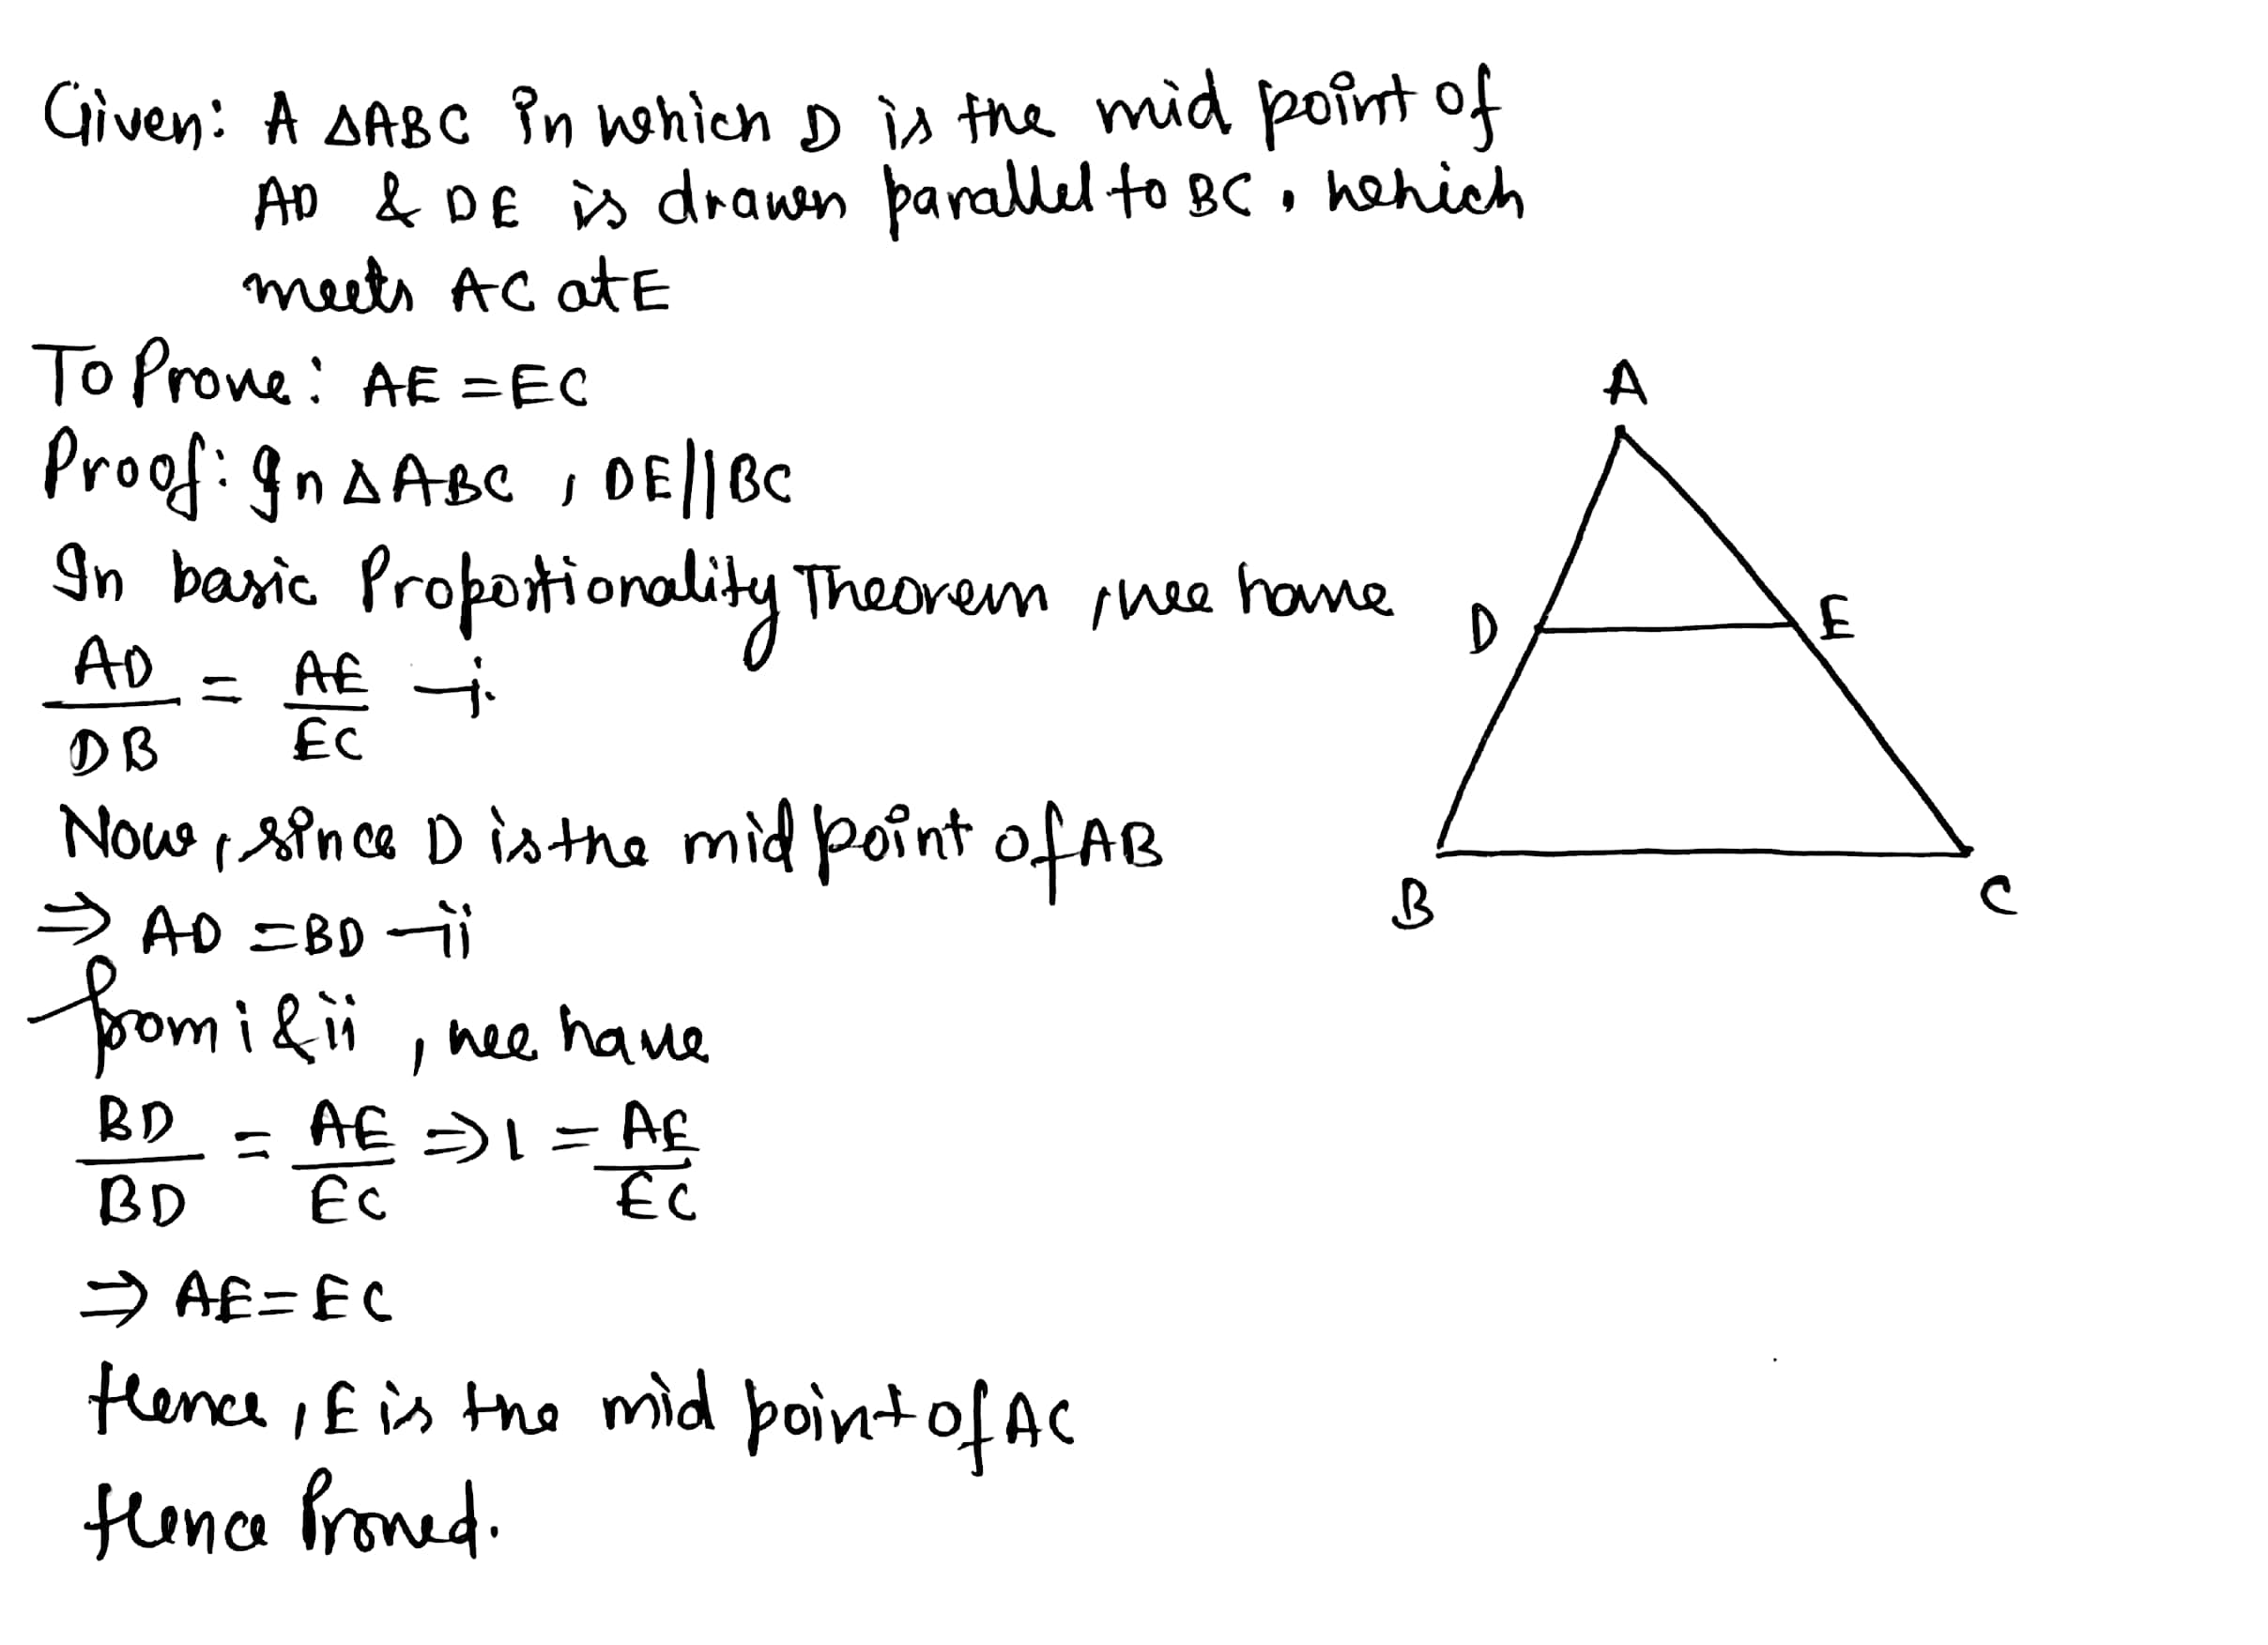 Given: A △ABC in which D is the mid point of
AD & DE is drawn parallel to BC, which
meets AC at E
To Prove: AE = EC
Proof: In △ABC, DE||BC
In basic Proportionality Theorem, we have
AD/DB = AE/EC —i
Now, since D is the midpoint of AB
⇒ AD = BD —ii
from i & ii, we have
BD/BD = AE/EC ⇒ 1 = AE/EC
⇒ AE = EC
Hence, E is the mid point of AC
Hence Proved.
A
D
E
B
C